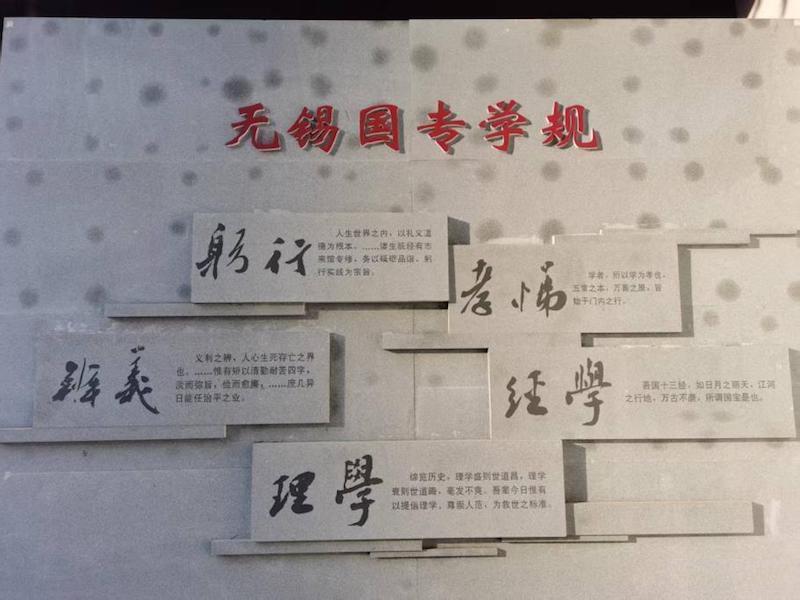 无锡国专学规
躬行
人生世界之内，以礼义道
德为根本。……诸生既经有志
来馆专修，务以砥砺品诣、躬
行实践为宗旨。
孝悌
学者，所以学为孝也。
五常之本，万善之原，皆
始于门内之行。
辨義
义利之辨，人心生死存亡之界
也。……惟有矫以清勤耐苦四字，
淡而弥旨，俭而愈廉，……庶几异
日能任治平之业。
经學
吾国十三经，如日月之丽天，江河
之行地，万古不废，所谓国宝是也。
理學
综览历史，理学盛则世道昌，理学
衰则世道晦，毫发不爽。吾辈今日惟有
以提倡理学，尊崇人范，为救世之标准。